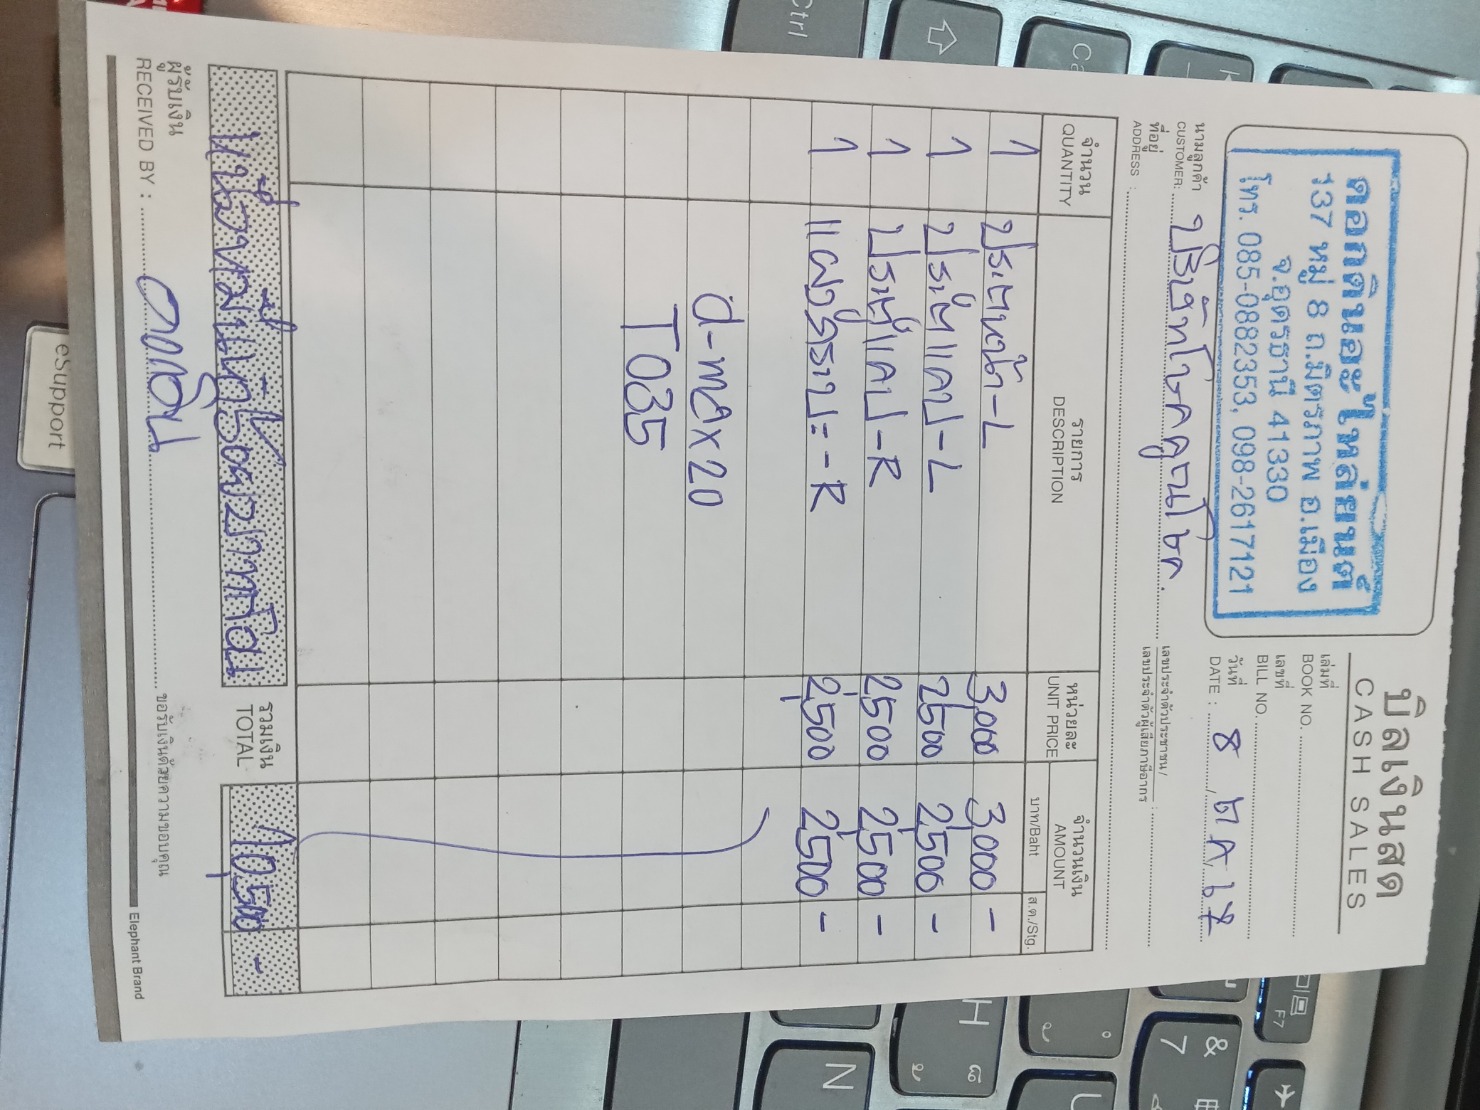 ดอกดินอะไหล่ยนต์
137 หมู่ 8 ถ.มิตรภาพ อ.เมือง
จ.อุดรธานี 41330
โทร. 085-0882353, 098-2617121
บิลเงินสด
CASH SALES
เล่มที่
BOOK NO.
เลขที่
BILL NO.
วันที่
DATE : 8 / ตค / 67
นามลูกค้า
CUSTOMER: บริษัทโชคคูณโชค.
ที่อยู่
ADDRESS :
เลขประจำตัวประชาชน/
เลขประจำตัวผู้เสียภาษีอากร :
จำนวน รายการ หน่วยละ จำนวนเงิน
QUANTITY DESCRIPTION UNIT PRICE AMOUNT
บาท/Baht ส.ต./Stg.
1 ประตูหน้า-L 3,000 3,000 -
1 ประตูแคป-L 2,500 2,500 -
1 ประตูแคป-R 2,500 2,500 -
1 แผงข้างกระบะ-R 2,500 2,500 -
d-max 20
T035
หนึ่งหมื่นห้าร้อยบาทถ้วน
รวมเงิน
TOTAL 10,500 -
ผู้รับเงิน
RECEIVED BY : ดอกดิน
ขอรับเงินด้วยความขอบคุณ
Elephant Brand
eSupport
Ctrl
F7
&
7
H
N
U